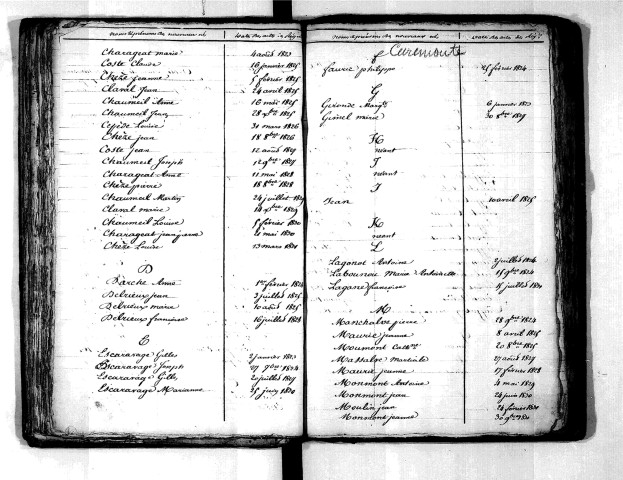 Charageat marie 4 août 1823
Coste Claire 16 janvier 1825
Chèze jeanne 5 février 1825
Claval Jean 24 avril 1825
Chaumeil Anne 16 mai 1825
Chaumeil Jean 28 xbre 1825
Cepède Louise 31 mars 1826
Chèze jean 18 8bre 1826
Coste jean 12 août 1827
Chaumeil Joseph 12 9bre 1827
Charageat Anne 11 mai 1828
Chèze pierre 18 8bre 1828
Chaumeil Martin 24 juillet 1829
Claval marie 14 xbre 1829
Chaumeil Louise 5 février 1830
Charageat jeanne 21 mai 1830
Chèze Louise 13 mars 1821
D
Barche Anne 1er février 1824
Delrieux jean 3 juillet 1825
Delrieux marie 10 août 1825
Delrieux françoise 16 juillet 1828
E
Escaravage Gilles 2 janvier 1823
Escaravage Joseph 27 9bre 1824
Escaravage Gilles 20 juillet 1827
Escaravage Marianne 25 juin 1830
Curemonte
F
Faurie philippe 25 février 1824
G
Gironde Margte 6 janvier 1823
Grinel marie 30 8bre 1829
H
néant
I
néant
J
Jean 10 avril 1825
K
néant
L
Lagane Antoine 2 juillet 1824
Labounoie Marie Antoinette 15 9bre 1824
Lagane françoise 15 juillet 1830
M
Monchalve pierre 28 9bre 1824
Maurie jeanne 8 avril 1825
Moumont Cathne 20 8bre 1825
Massalve martiale 27 août 1827
Maurie jeanne 17 février 1828
Monmont Antoine 4 mai 1829
Monmont jean 24 juin 1830
Moulin jean 24 février 1830
Monmont jeanne 30 9bre 1830